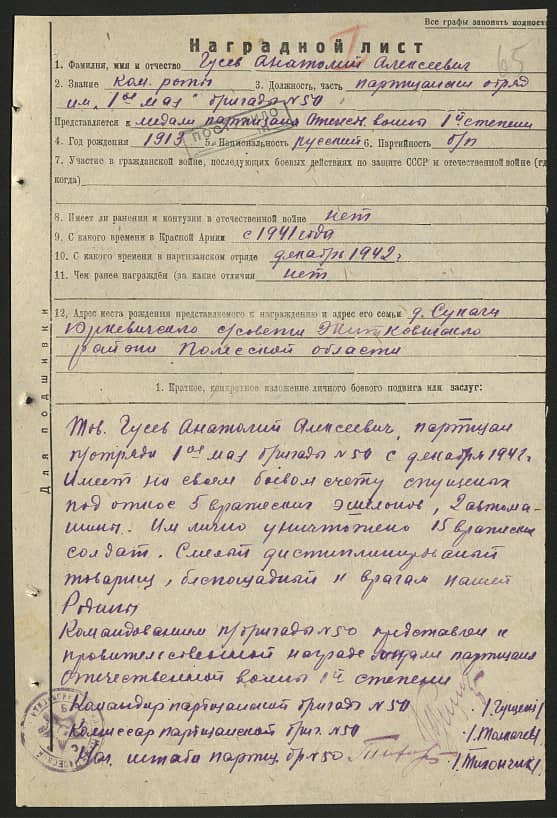 Все графы заполнять полностью
65
Наградной лист
1. Фамилия, имя и отчество Гусев Анатолий Алексеевич
2. Звание Ком. роты 3. Должность, часть партизанский отряд
им. "1ое мая" бригады N50
Представляется к медали партизана Отечеств. войны 1й степени
4. Год рождения 1913 5. Национальность русский 6. Партийность б/п
7. Участие в гражданской войне, последующих боевых действиях по защите СССР и отечественной войне (где,
когда)
8. Имеет ли ранения и контузии в отечественной войне нет
9. С какого времени в Красной Армии с 1941 года
10. С какого времени в партизанском отряде декабрь 1942 г
11. Чем ранее награждён (за какие отличия нет
12. Адрес места рождения представляемого к награждению и адрес его семьи д.
Юркевичского с/совета Житковичского
района Полесской области
1. Краткое, конкретное изложение личного боевого подвига или заслуг:
Тов. Гусев Анатолий Алексеевич, партизан
п/отряда 1ое мая бригады N50 с декабря 1942 г.
Имеет на своем боевом счету спущенных
под откос 5 вражеских эшелонов, 2 автома-
шины. Им лично уничтожено 15 вражеских
солдат. Смелый дисциплинированый
товарищ, беспощадный к врагам нашей
Родины
Командованием п/бригады N50 представлен к
правительственной награде медали партизана
Отечественной войны 1й степени
Командир партизанской бригады N50
Комиссар партизанской бриг. N50
Нач. штаба партиз. бр. N50 /Тихончик/
Для подшивки